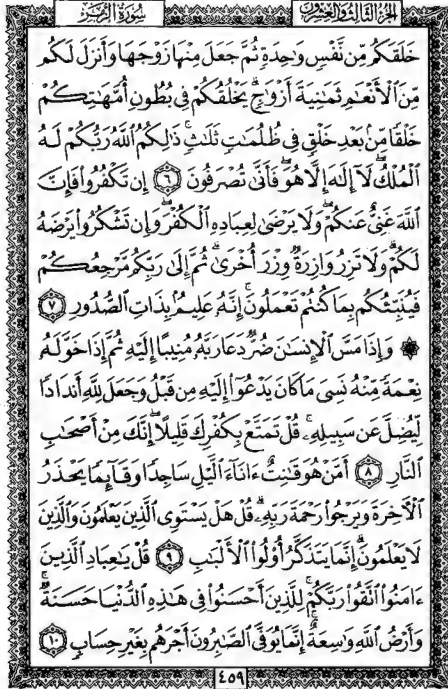 الجزء الثالث والعشرون
سورة الزمر
خَلَقَكُم مِّن نَّفْسٍ وَٰحِدَةٍ ثُمَّ جَعَلَ مِنْهَا زَوْجَهَا وَأَنزَلَ لَكُم
مِّنَ ٱلْأَنْعَٰمِ ثَمَٰنِيَةَ أَزْوَٰجٍ ۚ يَخْلُقُكُمْ فِى بُطُونِ أُمَّهَٰتِكُمْ
خَلْقًا مِّنۢ بَعْدِ خَلْقٍ فِى ظُلُمَٰتٍ ثَلَٰثٍ ۚ ذَٰلِكُمُ ٱللَّهُ رَبُّكُمْ لَهُ
ٱلْمُلْكُ ۖ لَآ إِلَٰهَ إِلَّا هُوَ ۖ فَأَنَّىٰ تُصْرَفُونَ ٦ إِن تَكْفُرُوا۟ فَإِنَّ
ٱللَّهَ غَنِىٌّ عَنكُمْ ۖ وَلَا يَرْضَىٰ لِعِبَادِهِ ٱلْكُفْرَ ۖ وَإِن تَشْكُرُوا۟ يَرْضَهُ
لَكُمْ ۗ وَلَا تَزِرُ وَازِرَةٌ وِزْرَ أُخْرَىٰ ۗ ثُمَّ إِلَىٰ رَبِّكُم مَّرْجِعُكُمْ
فَيُنَبِّئُكُم بِمَا كُنتُمْ تَعْمَلُونَ ۚ إِنَّهُۥ عَلِيمٌۢ بِذَاتِ ٱلصُّدُورِ ٧
۞ وَإِذَا مَسَّ ٱلْإِنسَٰنَ ضُرٌّ دَعَا رَبَّهُۥ مُنِيبًا إِلَيْهِ ثُمَّ إِذَا خَوَّلَهُۥ
نِعْمَةً مِّنْهُ نَسِىَ مَا كَانَ يَدْعُوٓا۟ إِلَيْهِ مِن قَبْلُ وَجَعَلَ لِلَّهِ أَندَادًا
لِّيُضِلَّ عَن سَبِيلِهِۦ ۚ قُلْ تَمَتَّعْ بِكُفْرِكَ قَلِيلًا ۖ إِنَّكَ مِنْ أَصْحَٰبِ
ٱلنَّارِ ٨ أَمَّنْ هُوَ قَٰنِتٌ ءَانَآءَ ٱلَّيْلِ سَاجِدًا وَقَآئِمًا يَحْذَرُ
ٱلْءَاخِرَةَ وَيَرْجُوا۟ رَحْمَةَ رَبِّهِۦ ۗ قُلْ هَلْ يَسْتَوِى ٱلَّذِينَ يَعْلَمُونَ وَٱلَّذِينَ
لَا يَعْلَمُونَ ۗ إِنَّمَا يَتَذَكَّرُ أُو۟لُوا۟ ٱلْأَلْبَٰبِ ٩ قُلْ يَٰعِبَادِ ٱلَّذِينَ
ءَامَنُوا۟ ٱتَّقُوا۟ رَبَّكُمْ ۚ لِلَّذِينَ أَحْسَنُوا۟ فِى هَٰذِهِ ٱلدُّنْيَا حَسَنَةٌ ۗ
وَأَرْضُ ٱللَّهِ وَٰسِعَةٌ ۗ إِنَّمَا يُوَفَّى ٱلصَّٰبِرُونَ أَجْرَهُم بِغَيْرِ حِسَابٍ ١٠
٤٥٩